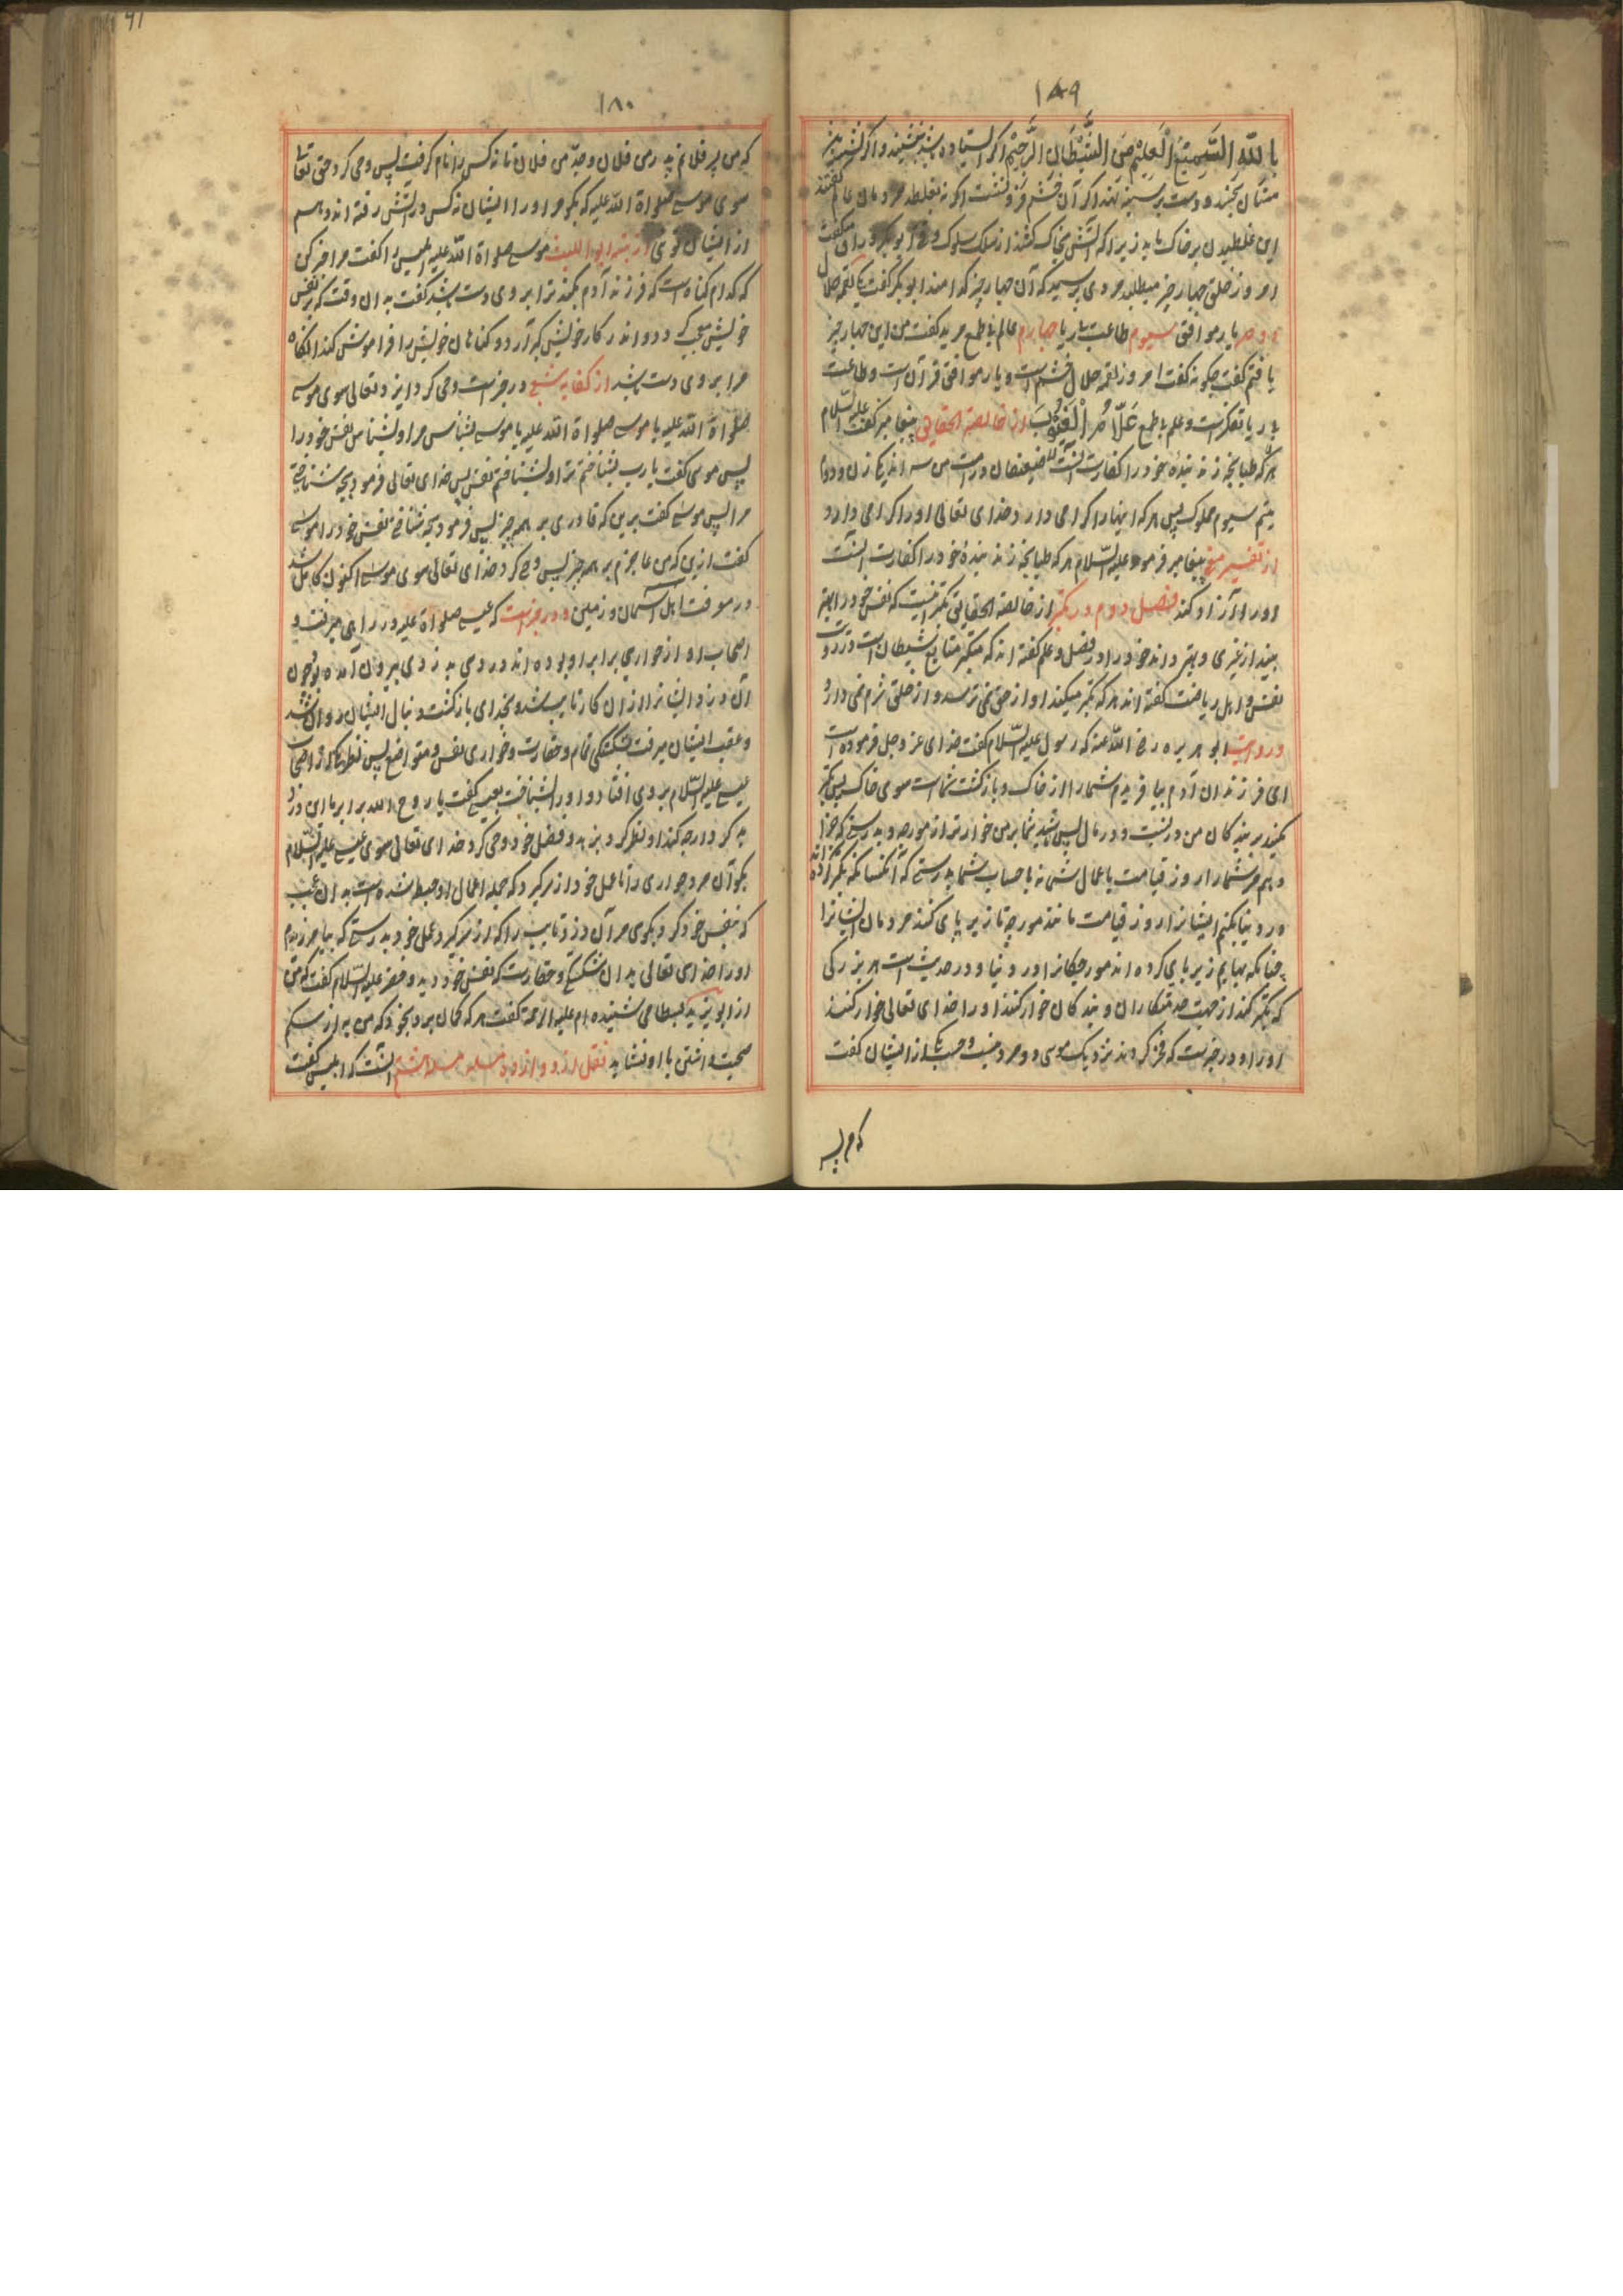 ۱۷۹
بالله السمیع العلیم من الشیطان الرجیم اگر ایستاده باشد بنشیند و اگر نشسته
اين غلطیدن بر خاک باید زیرا که آتش بخاک کشند از ملک سلوک و
امروز خلق چهار چیز میطلبد مردی پرسید که آن چهار چیز کدامند ابوبکر گفت یکی لقمه حلال
دوم یار موافق سیوم طاعت بی ریا چهارم عالم با طمع مرید گفت من این چهار چیز
یافتم گفت چگونه گفت امروز لقمه حلال خشم است و یار موافق قرآن است و طاعت
بی ریا تفکر است و علم با طمع علام الغیوب از خالصة الحقایق پیغامبر گفت علیه السلام
هر که طبانچه زند بندهٔ خود را کفارت آنست ضعیفان در امت من سه اند یکی زن و دوم
یتیم سیوم مملوک پس هر که اینها را گرامی دارد خدای تعالی او را گرامی دارد
از تفسیر پیغامبر فرمود علیه السلام هر که طبانچه زند بندهٔ خود را کفارت آنست
او را آزاد کند فصل دوم در تکبر از خالصة الحقایق تکبر آنست که نفس خود را بهتر
بیند از غیری و بهتر داند خود را و فضل و علم گفته اند که متکبر متابع شیطان است
نفس و اهل ریاضت گفته اند هر که تکبر میکند او از حق نمی ترسد و از خلق شرم نمی دارد
و روایت ابوهریره رضی الله عنه که رسول علیه السلام گفت خدای عز و جل فرموده است
ای فرزندان آدم بیافریدم شما را از خاک و بازگشت شماست سوی خاک پس تکبر
مکنید بر بندگان من در نسب و در مال پس باشید شما بر من خوارتر از مورچه و بدرستی که جزا
دهم مر شما را روز قیامت باعمال شما نه باحساب شما بدرستی که آنکسانکه تکبر کرده اند
در دنیا بکنم ایشانرا روز قیامت مانند مورچه تا زیر پای کنند مردمان ایشانرا
چنانکه بهایم زیر پای کرده اند مورچگانرا در دنیا و در حدیث است هر بزرگی
که تکبر کند از جهت خدمتکاران و بندگان خوار کنند او را خدای تعالی خوار کند
او را و در خبر است که فخر کردند نزدیک موسی دو مرد نسب و حسب یکی از ایشان گفت
که من پسر
۱۸۰
که من پسر فلانم پدر من فلان و جد من فلان تا نه کس را نام گرفت پس وحی کرد حق تعالی
سوی موسی صلواة الله علیه که بگو مر او را ایشان نه کس در آتش رفته اند دهم
از ایشان توی از تنبیه ابو اللیث موسی صلواة الله علیه ابلیس را گفت مرا خبر کن
که کدام گناه است که فرزند آدم بکند ترا بر وی دست باشد گفت بدان وقت که بر نفس
خویش معجب شود و اندر کار خویش گرد آرد و گناهان خویش را فراموش کند آنگاه
مرا بر وی دست باشد از کفایه شعبی در خبر است وحی کرد ایزد تعالی سوی موسی
صلواة الله علیه یا موسی صلواة الله علیه یا موسی بشناس مرا و بشناس نفس خود را
پس موسی گفت یارب بشناختم ترا و بشناختم نفس پس خدای تعالی فرمود بچه شناختی
مرا پس موسی گفت برین که قادری بر همه چیز پس فرمود بچه شناختی نفس خود را موسی
گفت ازین که من عاجزم بر همه چیز پس وحی کرد خدای تعالی سوی موسی اکنون کامل شد
در معرفت اهل آسمان و زمین و در خبر است که عیسی صلواة علیه در راهی میرفت و
اصحاب او از حواری برابر او بوده اند دزدی به دزدی بیرون آمده بود چون
آن دزد ایشانرا از آن کار تایب شد و بخدای بازگشت و دنبال ایشان روان شد
و عقب ایشان میرفت بشکستگی تمام و حقارت و خواری نفس و متواضع پس نظر کرد از اصحاب
عیسی علیه السلام بر وی افتاد و او را بشناخت بعیسی گفت یا روح الله برابر ما این دزد
بد کردار چه کند او نظر کرد بزهد و فضل خود وحی کرد خدای تعالی سوی عیسی علیه السلام
بگو آن مرد حواری را تا عمل خود از سر گیرد که جمله اعمال او حبط شده است بدان عجب
که بنفس خود کرد و بگوی مر آن دزد تایب را که از سر گیرد عمل خود بدرستی که بیامرزیدم
او را خدای تعالی بدان شکستگی و حقارت که نفس خود دید و خضر علیه السلام گفت که من
از ابویزید بسطامی شنیده ام علیه الرحمة گفت هر که گمان برد بخود که من به از کسم
صحبت داشتن با او نشاید نقل از دو از ده مسله مسله هشتم آنست که ابلیس گفت